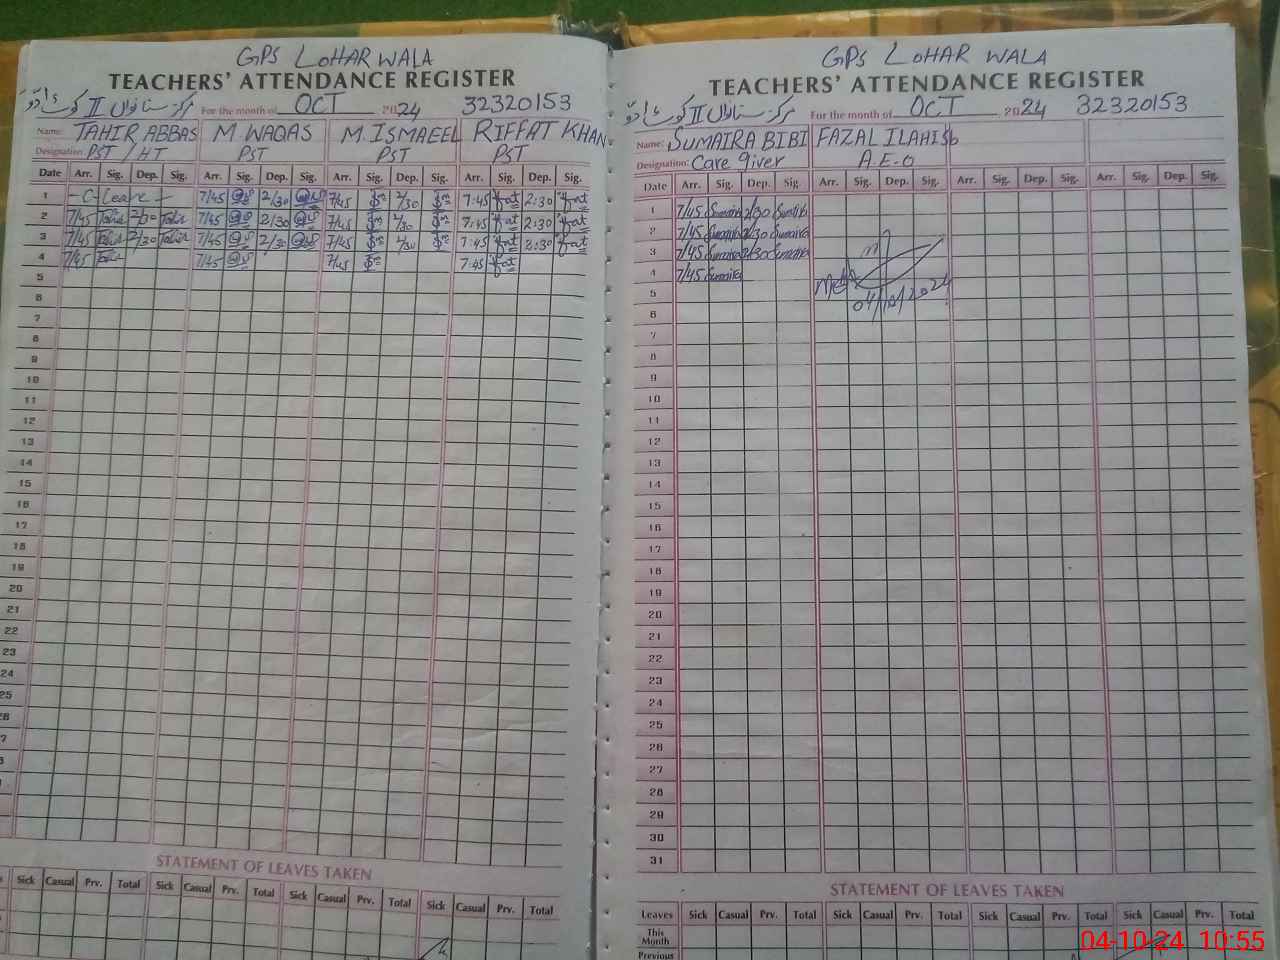 GPS LOHAR WALA
TEACHERS' ATTENDANCE REGISTER
مرکز ستاواں II کوٹ ادّو For the month of OCT 2024 32320153
Name: TAHIR ABBAS M WAQAS M. ISMAEEL RIFFAT KHAN
Designation: PST / HT PST PST PST
Date Arr. Sig. Dep. Sig. Arr. Sig. Dep. Sig. Arr. Sig. Dep. Sig. Arr. Sig. Dep. Sig.
1 - C-Leave - 7/45 2/30 7/45 2/30 7:45 2:30
2 7/45 Tahir 2/30 Tahir 7/45 2/30 7/45 2/30 7:45 2:30
3 7/45 Tahir 2/30 Tahir 7/45 2/30 7/45 2/30 7:45 2:30
4 7/45 Tahir 7/45 7/45 7:45
5
6
7
8
9
10
11
12
13
14
15
16
17
18
19
20
21
22
23
24
25
STATEMENT OF LEAVES TAKEN
Sick Casual Prv. Total Sick Casual Prv. Total Sick Casual Prv. Total Sick Casual Prv. Total
GPS LOHAR WALA
TEACHERS' ATTENDANCE REGISTER
مرکز ستاواں II کوٹ ادّو For the month of OCT 2024 32320153
Name: SUMAIRA BIBI FAZAL ILAHI Sb
Designation: Care giver A.E.O
Date Arr. Sig. Dep. Sig. Arr. Sig. Dep. Sig. Arr. Sig. Dep. Sig. Arr. Sig. Dep. Sig.
1 7/45 Sumaira 2/30 Sumaira
2 7/45 Sumaira 2/30 Sumaira
3 7/45 Sumaira 2/30 Sumaira
4 7/45 Sumaira
5 04/10/2024
6
7
8
9
10
11
12
13
14
15
16
17
18
19
20
21
22
23
24
25
26
27
28
29
30
31
STATEMENT OF LEAVES TAKEN
Leaves Sick Casual Prv. Total Sick Casual Prv. Total Sick Casual Prv. Total Sick Casual Prv. Total
This Month
Previous
04-10-24 10:55